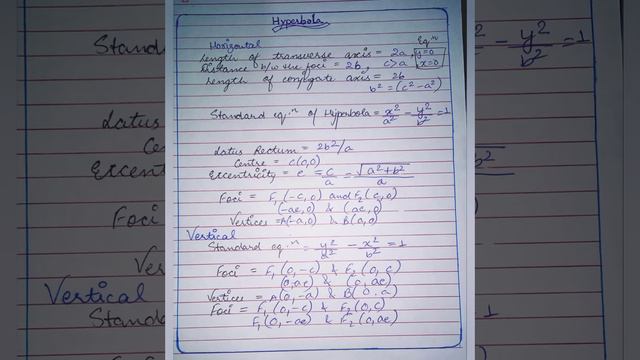 Hyperbola
Horizontal Eq.ⁿ
Length of transverse axis = 2a y=0
Distance b/w the foci = 2b, c>a x=0
Length of conjugate axis = 2b
b² = (c² - a²)
Standard eq.ⁿ of Hyperbola = x²/a² - y²/b² = 1
Latus Rectum = 2b²/a
Centre = C(0,0)
Eccentricity = e = c/a = √(a²+b²)/a
Foci = F₁(-c,0) and F₂(c,0)
(-ae,0) & (ae,0)
Vertices = A(-a,0) & B(a,0)
Vertical
Standard eq.ⁿ = y²/a² - x²/b² = 1
Foci = F₁(0,-c) & F₂(0,c)
(0,ae) & (0,ae)
Vertices = A(0,-a) & B(0,a)
Foci = F₁(0,-c) & F₂(0,c)
F₁(0,-ae) & F₂(0,ae)